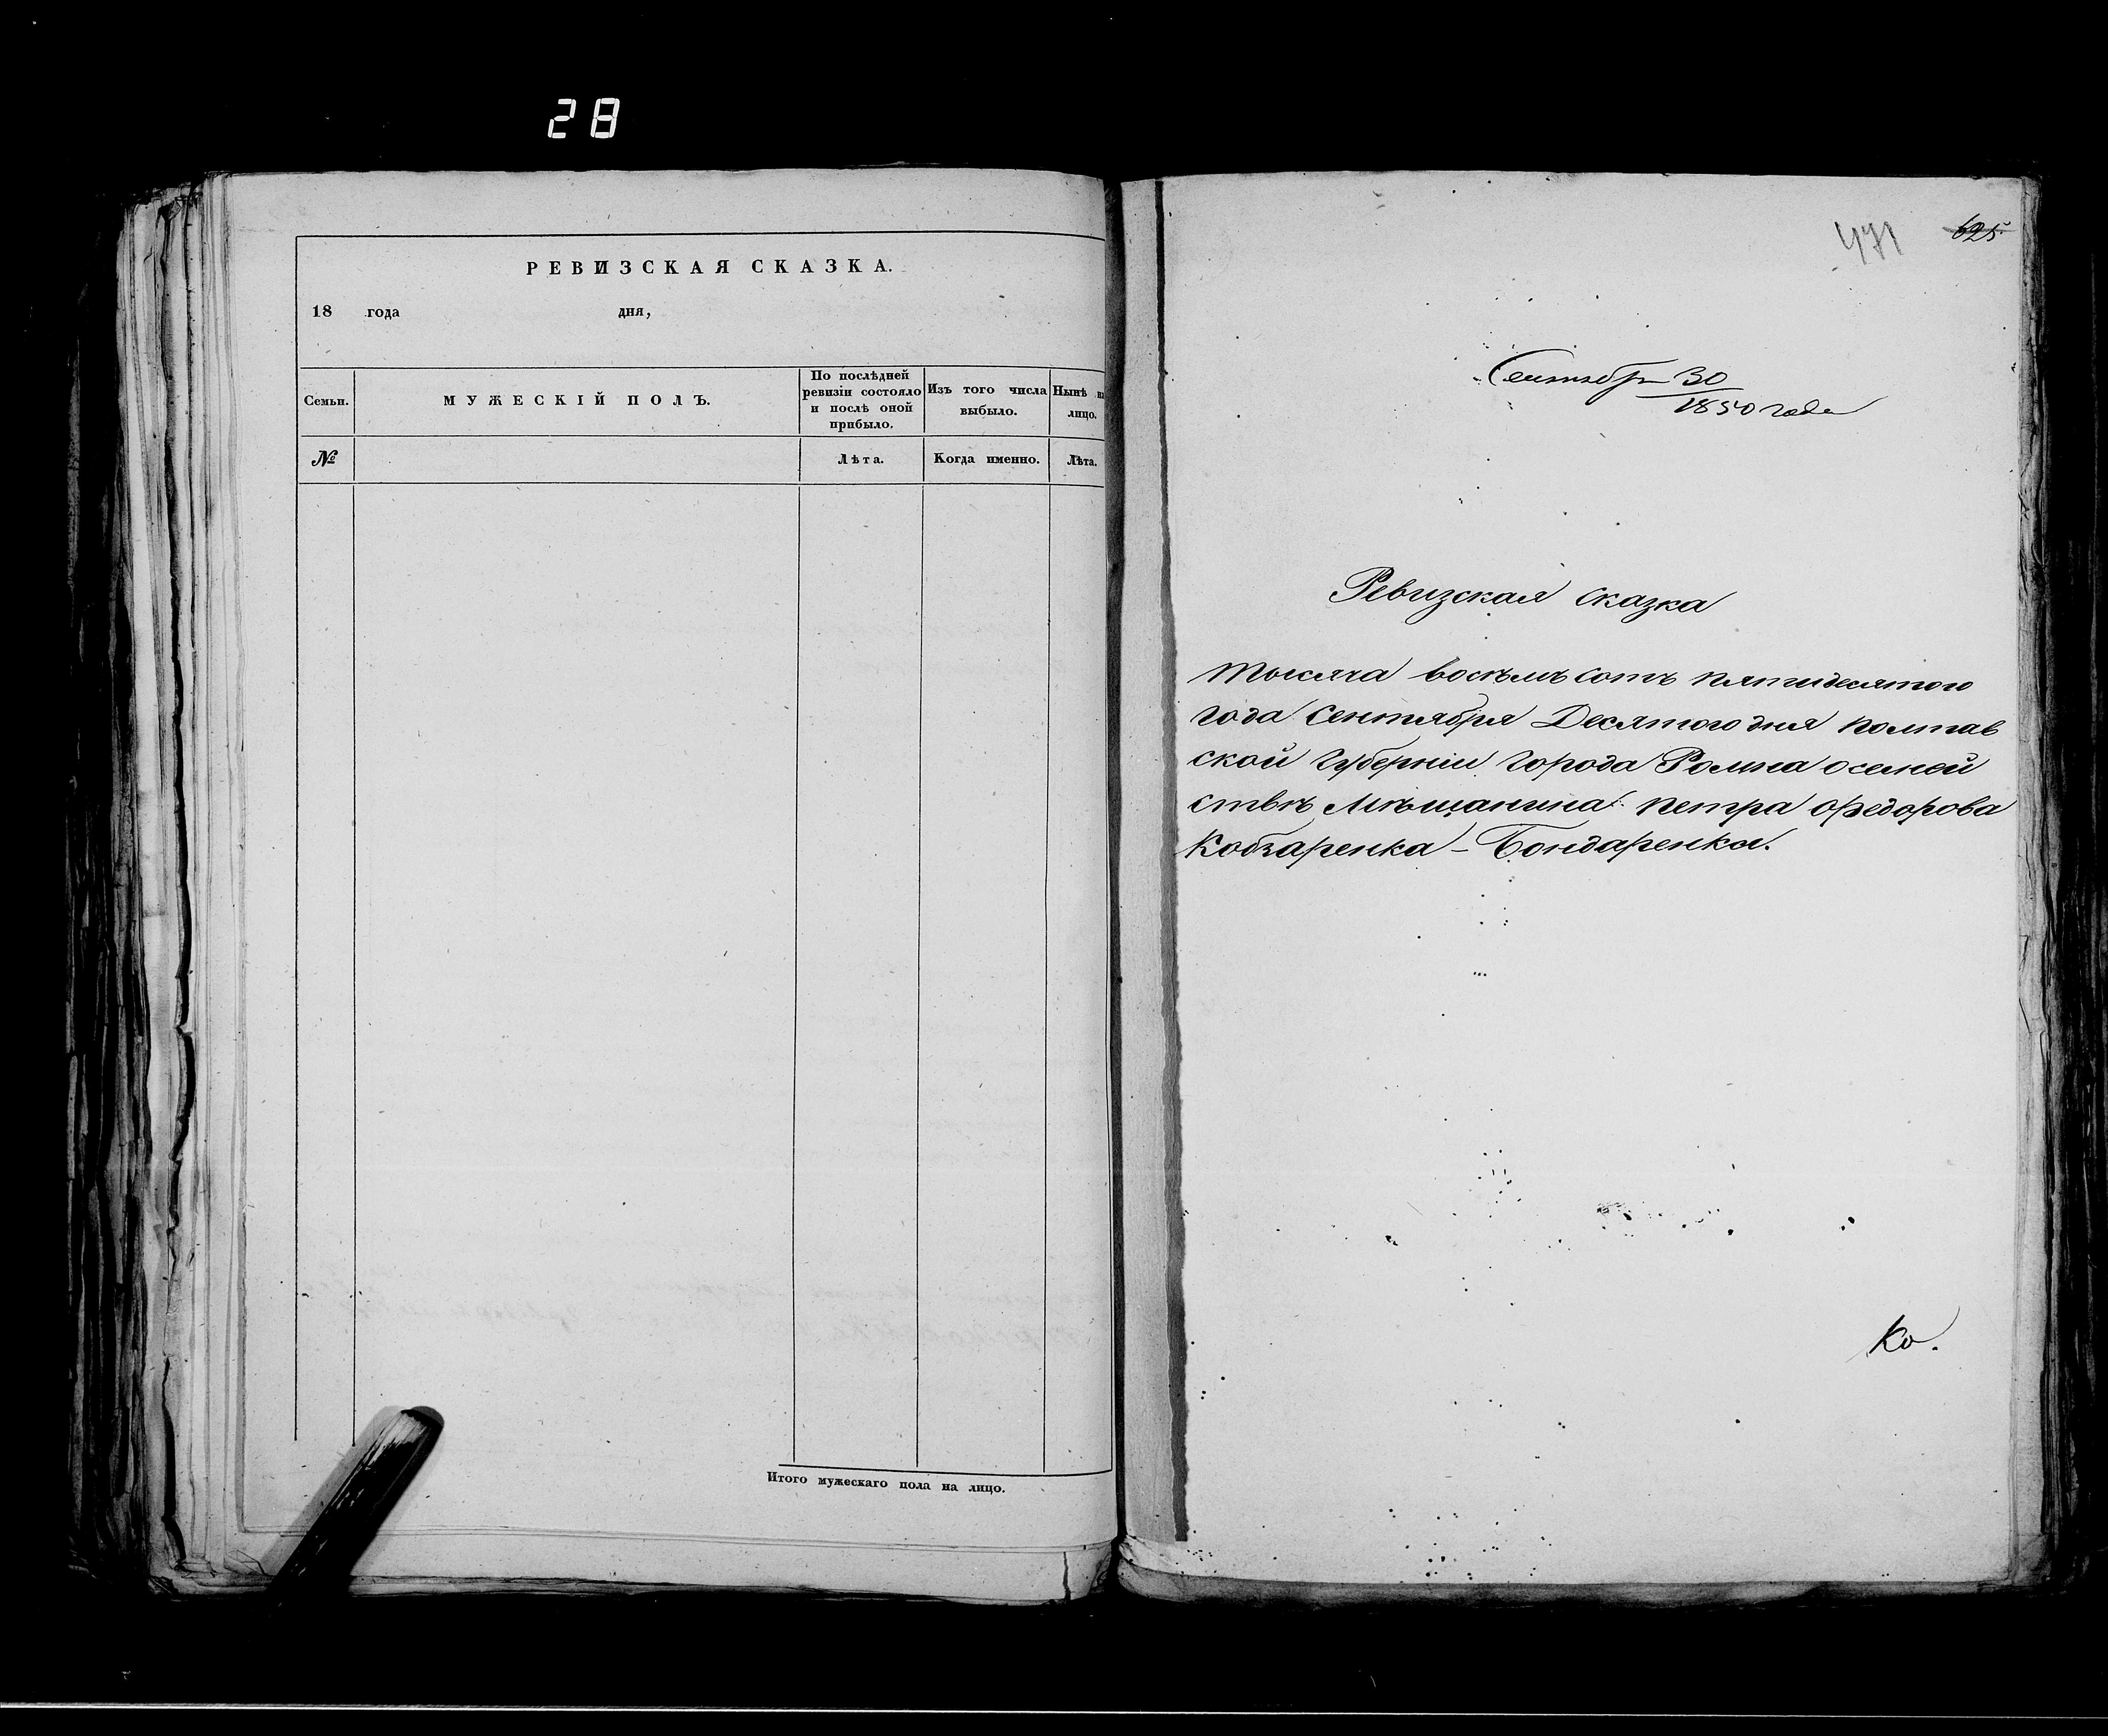 28
РЕВИЗСКАЯ СКАЗКА.
18 года дня,
Семьи.
МУЖЕСКІЙ ПОЛЪ.
По послѣдней
ревизіи состояло
и послѣ оной
прибыло.
Изъ того числа
выбыло.
Нынѣ на
лицо.
№
Лѣта.
Когда именно.
Лѣта.
Итого мужескаго пола на лицо.
471
625
Сентябр 30
1850 года
Ревизская сказка
тысяча восѣмъ сотъ пятидесятого
года Сентября Десятого дня Полтав
ской Губерніи города Ромна о семей
ствѣ Мѣщанина Петра Ѳедорова
Кобзаренка - Бондаренка.
Ко.